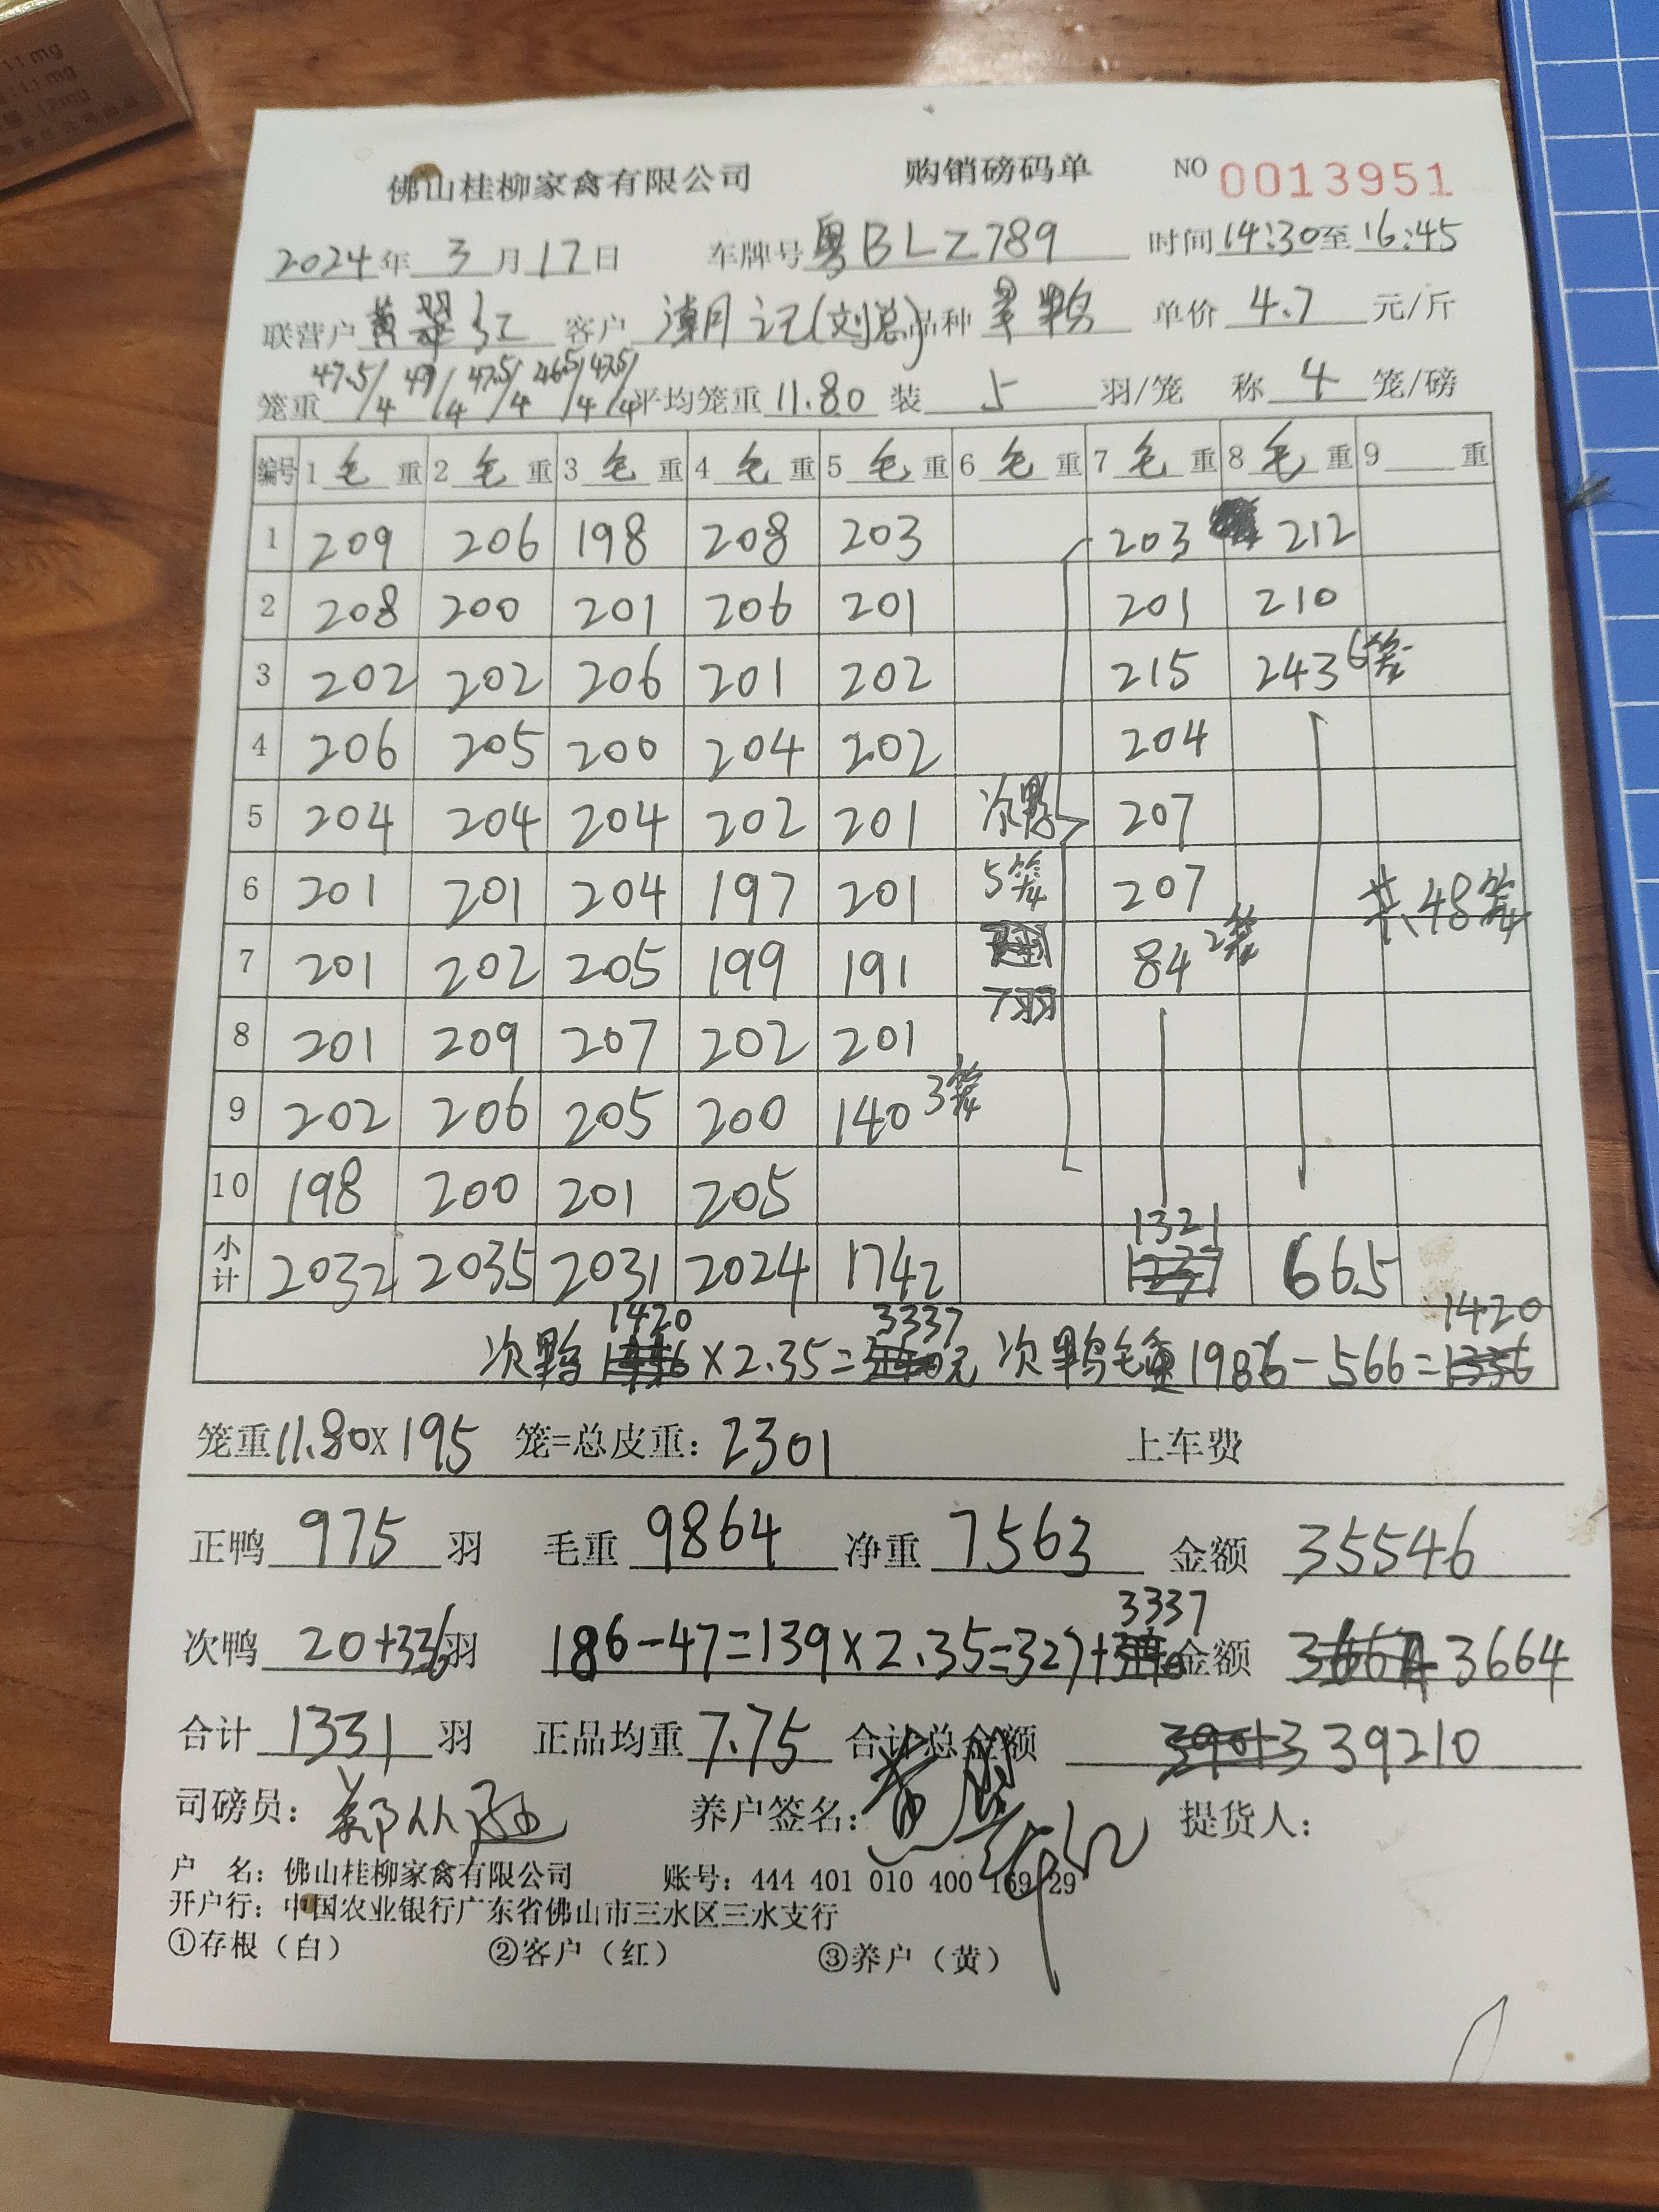 11mg
:11mg
:12mg
佛山桂柳家禽有限公司 购销磅码单 NO 0013951
2024年 3 月 17 日 车牌号 粤BLZ789 时间 14:30 至 16:45
联营户 黄翠红 客户 记(刘总) 品种 单价 4.7 元/斤
笼重 47.5/4 /4 47.5/4 46.5/4 47.5/4 平均笼重 11.80 装 5 羽/笼 称 4 笼/磅
编号 1 毛 重 2 毛 重 3 毛 重 4 毛 重 5 毛 重 6 毛 重 7 毛 重 8 毛 重 9 重
1 209 206 198 208 203 203 212
2 208 200 201 206 201 201 210
3 202 202 206 201 202 215 243 6笼
4 206 205 200 204 202 204
5 204 204 204 202 201 次鸭 207
6 201 201 204 197 201 5笼 207 共48笼
7 201 202 205 199 191 84 2笼
8 201 209 207 202 201 7羽
9 202 206 205 200 140 3笼
10 198 200 201 205
小计 2032 2035 2031 2024 1742 1321 665
次鸭 1420 ×2.35= 3337 元 次鸭毛重 1986-566= 1420
笼重 11.80× 195 笼=总皮重: 2301 上车费
正鸭 975 羽 毛重 9864 净重 7563 金额 35546
次鸭 20+336 羽 186-47=139×2.35=327+ 3337 金额 3664
合计 1331 羽 正品均重 7.75 合计总金额 39210
司磅员: 养户签名: 提货人:
户 名: 佛山桂柳家禽有限公司 账号: 444 401 010 400 169 29
开户行: 中国农业银行广东省佛山市三水区三水支行
①存根(白) ②客户(红) ③养户(黄)